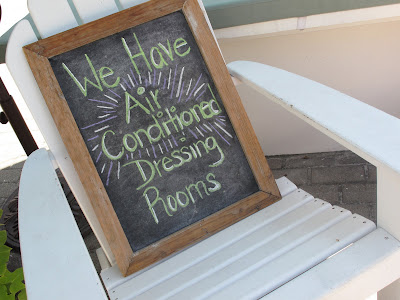 We Have
Air
Conditioned
Dressing
Rooms